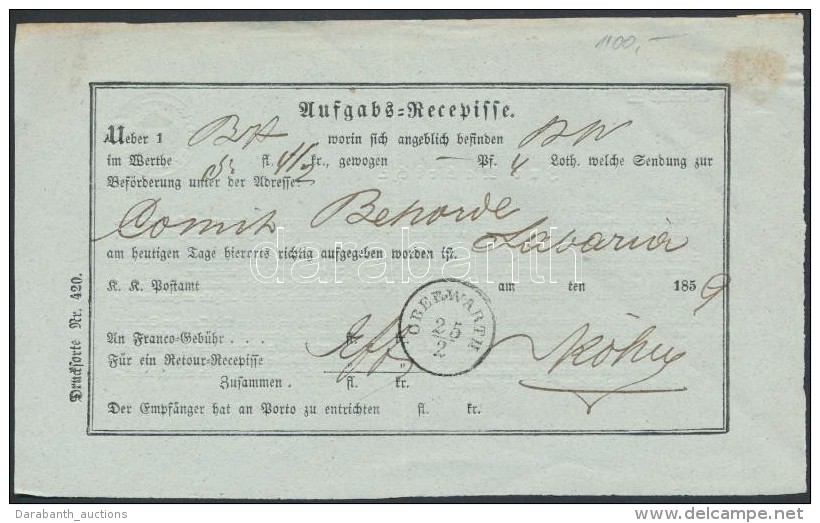 1100,–
Aufgabs=Recepisse.
Ueber 1 worin sich angeblich befinden
im Werthe fl. kr., gewogen – Pf. 4 Loth. welche Sendung zur
Beförderung unter der Adresse:
Comit. Behörde
Sabaria
am heutigen Tage hierorts richtig aufgegeben worden ist.
K. K. Postamt am ten 1859
OBERWARTH
25
2
An Franco=Gebühr . . . fl. kr.
Für ein Retour=Recepisse " "
Zusammen . fl. kr.
Der Empfänger hat an Porto zu entrichten fl. kr.
Drucksorte Nr. 420.
darabanth
Darabanth_auctions
delcampe.net